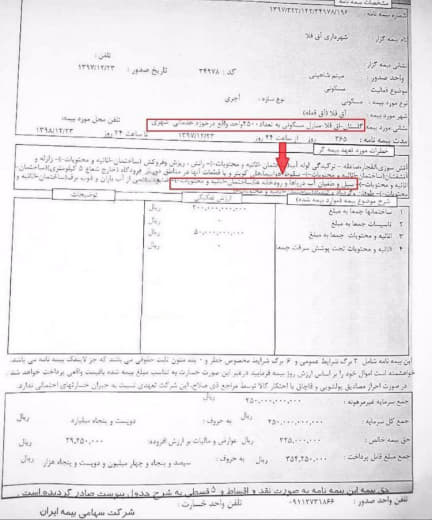 مشخصات بیمه نامه
شماره بیمه نامه : ۱۳۹۷/۳۲۲/۱۲۲/۳۴۹۷۸/۱۹۶
نام بیمه گزار شهرداری آق قلا
نشانی بیمه گزار تلفن :
واحد صدور : میثم شاهینی کد : ۳۴۹۷۸ تاریخ صدور : ۱۳۹۷/۱۲/۲۳
موضوع فعالیت مسکونی
مورد بیمه : مسکونی نوع سازه : آجری
شهر مورد بیمه : آق قلا (آق قلعه) تلفن محل مورد بیمه :
نشانی مورد بیمه گلستان-آق قلا-منازل مسکونی به تعداد ۴۵۰۰ واحد واقع در حوزه خدماتی شهری
مدت بیمه نامه : ۳۶۵ روز از ساعت ۲۴ روز ۱۳۹۷/۱۲/۲۳ تا ساعت ۲۴ روز ۱۳۹۸/۱۲/۲۳
خطرات مورد تعهد بیمه گر :
آتش سوزی، انفجار، صاعقه - ترکیدگی لوله آب (ساختمان-اثاثیه و محتویات) - رانش ، ریزش و فروکش (ساختمان-اثاثیه و محتویات) - زلزله و
سیل و طغیان آب دریاها و رودخانه ها (ساختمان-اثاثیه و محتویات)
شرح موضوع بیمه (موارد بیمه شده) ارزش تفکیکی توضیحات
۱ ساختمانها جمعا به مبلغ ۲۰۰,۰۰۰,۰۰۰,۰۰۰ ریال
۲ تاسیسات جمعا به مبلغ ۰ ریال
۳ اثاثیه و محتویات جمعا به مبلغ ۵۰,۰۰۰,۰۰۰,۰۰۰ ریال
۴ اثاثیه و محتویات تحت پوشش سرقت جمعا ۰ ریال
این بیمه نامه شامل ۲ برگ شرایط عمومی و ۶ برگ شرایط مخصوص خطر و ۰ بند متون ثالث حقوقی می باشد که جز لاینفک بیمه نامه می باشد.
خواهشمند است اموال خود را بر اساس ارزش روز بیمه فرمایید در غیر این صورت خسارت به تناسب مبلغ بیمه شده باقیمت واقعی پرداخت خواهد شد .
در صورت احراز مصادیق پولشویی و قاچاق یا احتکار کالا توسط مراجع ذی صلاح، این شرکت تعهدی نسبت به جبران خسارتهای احتمالی ندارد.
جمع سرمایه غیر مرهونه : ۲۵۰,۰۰۰,۰۰۰,۰۰۰ ریال
جمع کل سرمایه : ۲۵۰,۰۰۰,۰۰۰,۰۰۰ ریال به حروف : دویست و پنجاه میلیارد ریال
حق بیمه خالص : ۳۲۵,۰۰۰,۰۰۰ ریال عوارض و مالیات بر ارزش افزوده: ۲۹,۲۵۰,۰۰۰ ریال
جمع مبلغ قابل پرداخت : ۳۵۴,۲۵۰,۰۰۰ ریال به حروف : سیصد و پنجاه و چهار میلیون و دویست و پنجاه هزار ریال
حق بیمه این بیمه نامه به صورت نقد و اقساط و ۵ قسطی به شرح جدول پیوست صادر گردیده است .
تلفن واحد صدور : ۰۹۱۱۲۷۳۱۸۶۶ تلفن واحد خسارت :
شرکت سهامی بیمه ایران